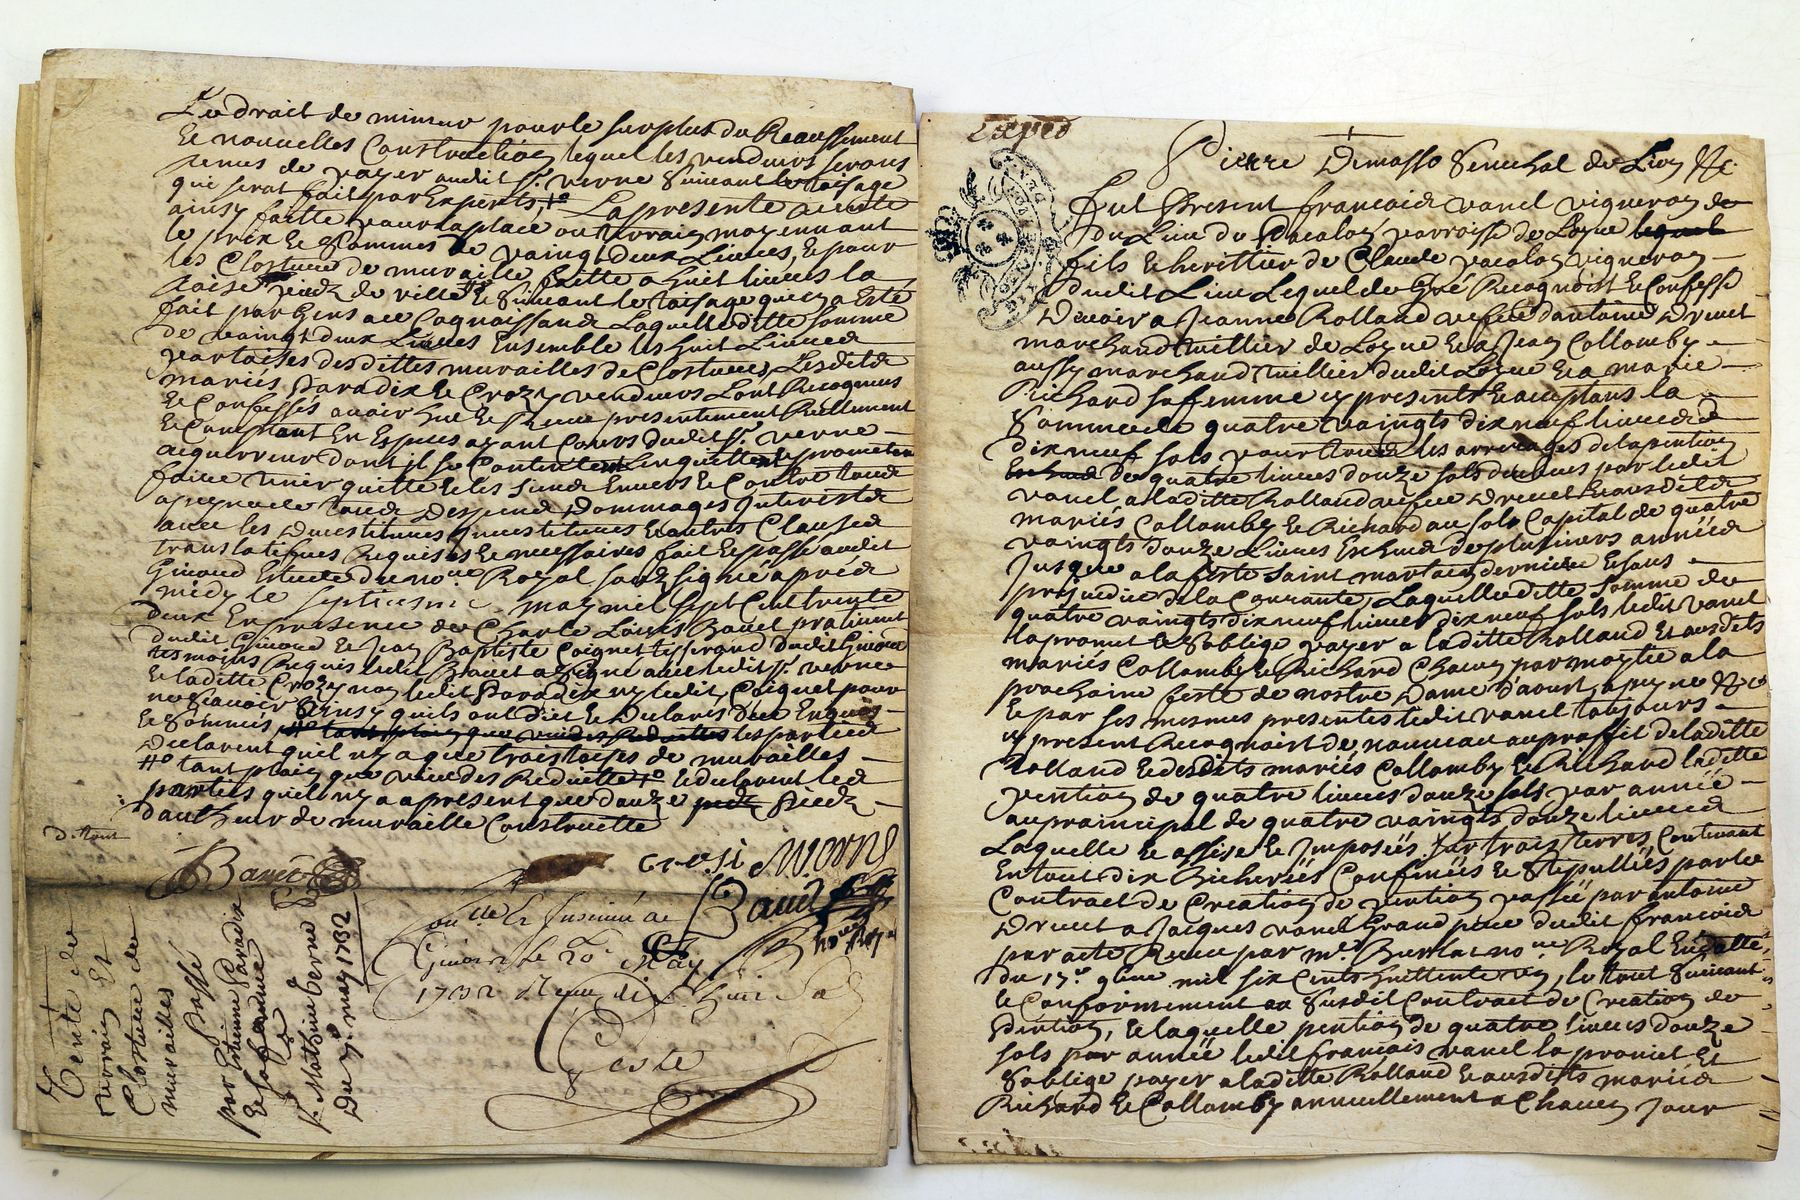 Le droit de mineur pour le surplus du Reaussement
Et nouuelles Construction lequel les vendeurs seront
tenus de payer audit Sr. verne Suiuant le toisage
qui serat fait par Experts, La presente vente
ainsy faitte pour la place ou terrain moyennant
le prix Et Sommes de vaingt deux Liures, Et pour
les Closture de muraille faitte a huit liures la
toise pied de ville Et Suiuant le toisage quen a Esté
fait par gens a ce Cognoissant Laquelle ditte somme
de vaingt deux Liures Ensemble les huit Liures
par toises desdittes murailles de Clostures, Lesdits
mariés paradix Et Crozy vendeurs L'ont Recognus
Et Confessés auoir heu Et Receu presentement Reellement
Et Comptant En Especes ayant Cours dudit Sr. verne
aquerreur dont jl se Contentent Lenquittent Et promettent
faire tenir quitte Et les siens Enuers Et Contre tous
a peyne de tous Despens Dommages Interests
auec les Deuestitures Inuestitures Et autres Clauses
translatifues Requises Et necessaires fait Et passé audit
Giuord Estude du nore Royal soubzsigné aprés
midy le septiesme may mil sept Cent trente
deux En presence de Charle Louis Bauet praticient
dudit Giuord Et Jean Baptiste Coignet tisserand dudit Giuord
tesmoins Requis ledit Bauet a signé auec ledit Sr. verne
Et laditte Crozy non ledit Paradix ny ledit Coignet pour
ne scauoir Ainsy quils ont dict Et Declarés De ce Enquis
Et Sommés tant plein que vuides Reduittes les parties
Declarent quil ny a que trois toises de murailles
tant plein que vuides Reduitte Et declarent les
parties quil ny a a present que douze pieds pieds
d'autheur de muraille Construitte
Bauet
crosi
Verne
Bauet
nore Royal
Conlle Et Insinué a
Giuors le 20e May
1732 Receu dix huit Sols
Geste
Vente de
terrain Et
Closture de
murailles
Passé
par Estienne Paradix
Et sa femme
a
Sr. Mathieu Verne
Du 7e. may 1732
Pierre Demasso Senechal de Lion &c.
Fut Present francois vanel vigneron de
du Lieu du Pacalon parroisse de Loyre lequel
fils Et herittier de Claude pacalon vigneron
dudit Lieu Lequel de Gré Recognoist Et Confesse
Deuoir a Jeanne Rolland vefue d'antoine Dreuet
marchand tuillier de Loyre Et a Jean Collomby
aussy marchand tuillier dudit Loyre Et a marie
Richard sa femme cy presents Et acceptans la
Somme de quatre vaingts dix neuf liures
dix neuf sols pour tous les arrerages de la pention
Escheue de quatre liures douze sols deues par ledit
vanel a laditte Rolland vefue Dreuet Et ausdits
mariés Collomby Et Richard au sol Capital de quatre
vaingts douze Liures Escheue de plusieurs années
Jusque a la feste Saint martain derniere Et sans
prejudice de la Courante, Laquelle ditte somme de
quatre vaingts dix neuf liures dix neuf sols ledit vanel
La promit Et S'oblige payer a laditte Rolland Et ausdits
mariés Collomby Et Richard Chacun par moytie a la
prochaine feste de nostre Dame d'aoust a peyne &c
Et par ses mesmes presentes ledit vanel tousjours
cy present Recognoist de nouueau au proffit de laditte
Rolland Et desdits mariés Collomby Et Richard laditte
pention de quatre liures douze sols par année
au praincipal de quatre vaingts douze liures
Laquelle Et assise Et Imposées sur trois terres Contenant
En tout dix Bicherées Confinées Et Stipullées par le
Contract de Creation de pention passée par antoine
Dreuet a Jacques vanel Grand pere dudit francois
par acte Receu par me. Burlat nore Royal En datte
du 17e. 9bre mil six Cents huittente un, le tout Suiuant
Et Conformement au susdit Contract de Creation de
pention, Et laquelle pention de quatre liures douze
sols par année ledit francois vanel la promet Et
S'oblige payer a laditte Rolland Et ausdits mariés
Richard Et Collomby annuellement a Chacun Jour